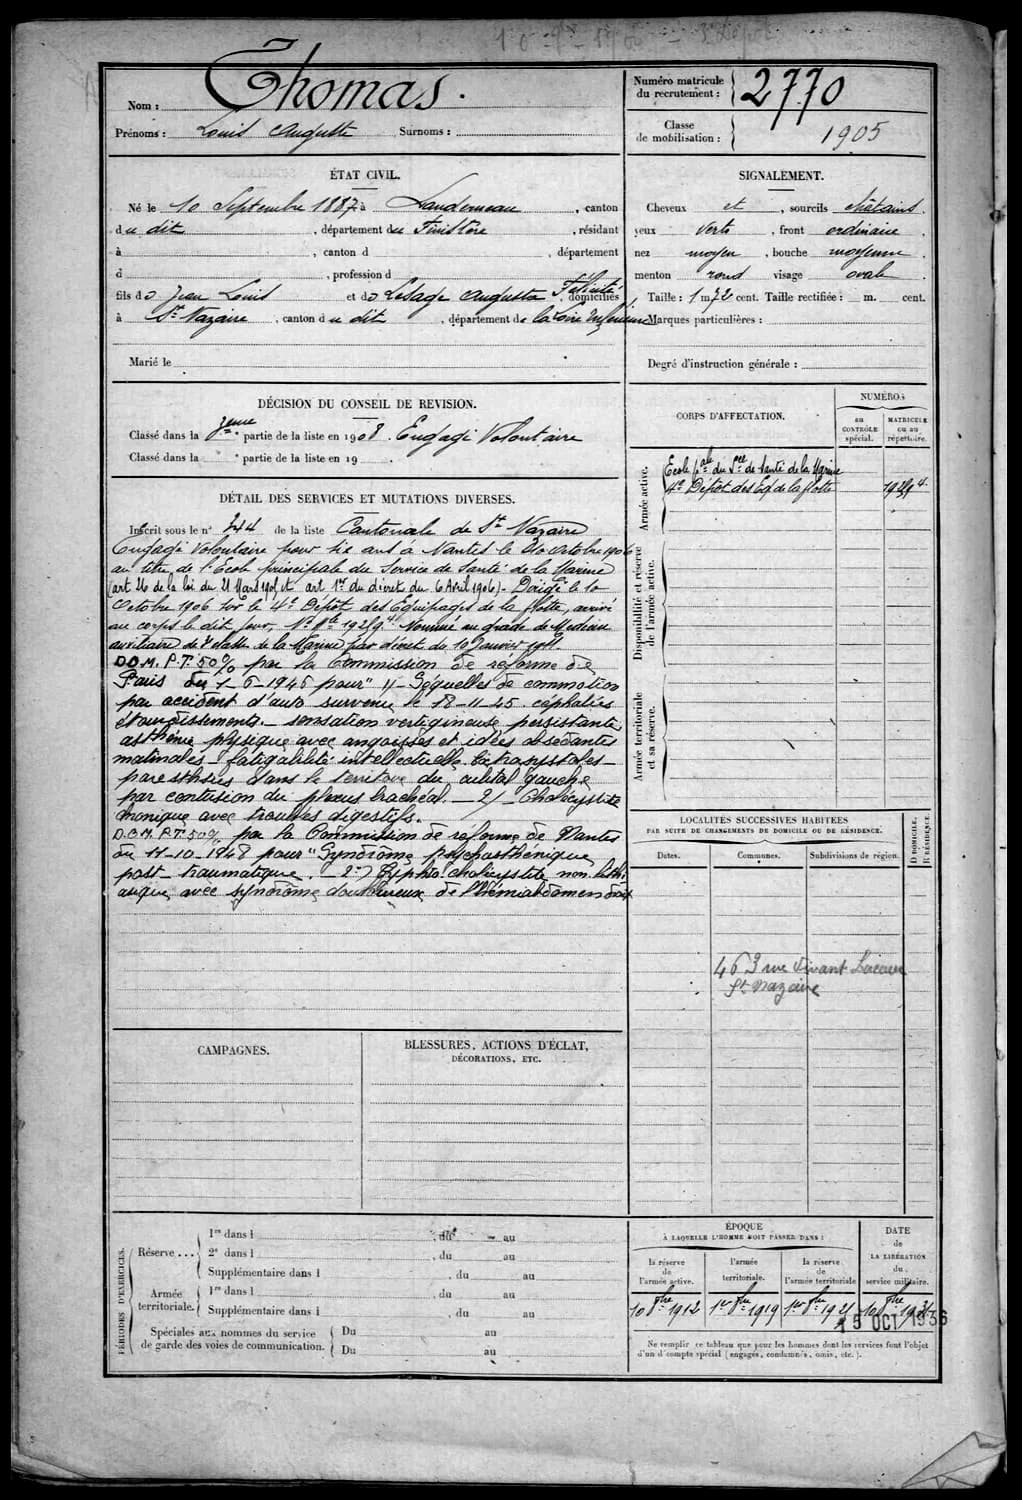 Nom : Thomas.
Prénoms : Louis Auguste Surnoms :
Numéro matricule du recrutement : 2770
Classe de mobilisation : 1905
ÉTAT CIVIL.
Né le 10 Septembre 1887 à Landerneau , canton
du dit , département du Finistère , résidant
à , canton d , département
d , profession d
fils d Jean Louis et d Lesage Augusta Félicité , domiciliés
à St Nazaire , canton du dit , département de la Loire Inférieure
Marié le
SIGNALEMENT.
Cheveux et , sourcils châtains .
yeux verts , front ordinaire .
nez moyen , bouche moyenne .
menton rond visage ovale
Taille : 1 m 72 cent. Taille rectifiée : m. cent.
Marques particulières :
Degré d'instruction générale :
DÉCISION DU CONSEIL DE REVISION.
Classé dans la partie de la liste en 1908 . Engagé Volontaire
Classé dans la partie de la liste en 19 .
DÉTAIL DES SERVICES ET MUTATIONS DIVERSES.
Inscrit sous le n° 244 de la liste Cantonale de St Nazaire
Engagé Volontaire pour six ans à Nantes le 10 octobre 1906
au titre de l'Ecole principale du Service de Santé de la Marine
(art 26 de la loi du 21 Mars 1905 et art 1er du décret du 6 Avril 1906) - Dirigé le 10
Octobre 1906 sur le 4e Dépôt des Equipages de la flotte, arrivé
au corps le dit jour, Nommé au grade de Médecin
auxiliaire de 2e classe de la Marine par décret du 10 Janvier 1911.
D.O.M. P.T. 50% par la Commission de réforme de
Paris du 1-6-1946 pour " 1/- Séquelles de commotion
par accident d'auto survenu le 18-11-45. céphalées
étourdissements - sensation vertigineuse persistante,
asthénie physique avec angoisses et idées obsédantes
matinales - fatigabilité intellectuelle. Extrasystoles -
paresthésies dans le territoire du cubital gauche
par contusion du plexus brachéal. - 2/- Cholécystite
chronique avec troubles digestifs.
D.O.M. P.T. 50% par la Commission de réforme de Nantes
du 11-10-1948 pour " Syndrôme psychasthénique
post traumatique. 2°) cholécystite non
avec syndrôme douloureux de l'hémiabdomen droit
CORPS D'AFFECTATION.
NUMÉROS
au CONTRÔLE spécial.
MATRICULE ou au répertoire.
Armée active.
Ecole pale du Sce de Santé de la Marine
4e Dépôt des Eq de la flotte
Disponibilité et réserve de l'armée active.
Armée territoriale et sa réserve.
LOCALITÉS SUCCESSIVES HABITÉES
PAR SUITE DE CHANGEMENTS DE DOMICILE OU DE RÉSIDENCE.
Dates. Communes. Subdivisions de région. D DOMICILE. R RÉSIDENCE.
463 rue Vivant Lacour
St Nazaire
CAMPAGNES.
BLESSURES, ACTIONS D'ÉCLAT,
DÉCORATIONS, ETC.
PÉRIODES D'EXERCICES.
Réserve... 1re dans l , du au
2e dans l , du au
Supplémentaire dans l , du au
Armée territoriale. 1re dans l , du au
Supplémentaire dans l , du au
Spéciales aux hommes du service de garde des voies de communication. Du au
Du au
ÉPOQUE
À LAQUELLE L'HOMME DOIT PASSER DANS :
la réserve de l'armée active.
l'armée territoriale.
la réserve de l'armée territoriale
DATE de LA LIBÉRATION du service militaire.
10 8bre 1912
1er 8bre 1919
15 OCT 1936
Ne remplir ce tableau que pour les hommes dont les services font l'objet
d'un décompte spécial (engagés, condamnés, omis, etc.).